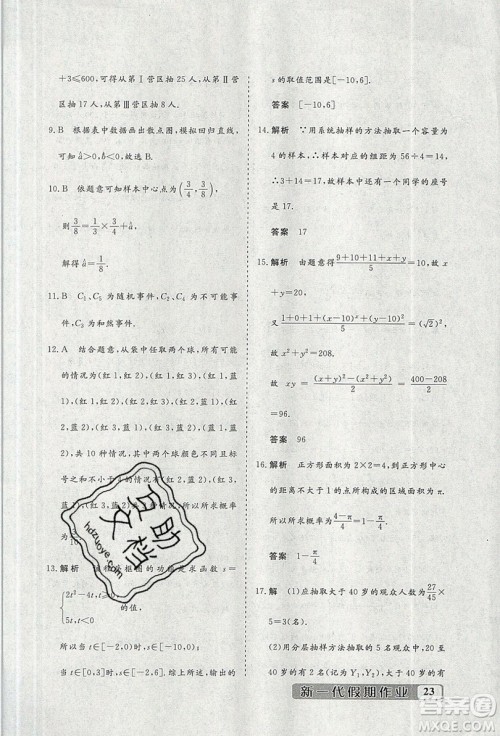 +3≤600,可得从第Ⅰ营区抽 25 人,从第Ⅱ营
区抽 17 人,从第Ⅲ营区抽 8 人.
9. B 根据表中数据画出散点图,模拟回归直线,
可知 â>0,b̂<0,故选 B.
10. B 依题意可知样本中心点为(3/4, 3/8),
则 3/8=1/3×3/4+â,
解得:â=1/8.
11. B C₁、C₅ 为随机事件,C₂、C₄ 为必然事件,
C₃ 为不可能事件.
12. A 结合题意,从袋中任取两个球,所有可能
的情况为(红 1,红 2),(红 1,红 3),(红 1,蓝
1),(红 1,蓝 2),(红 2,红 3),(红 2,蓝 1),(红
2,蓝 2),(红 3,蓝 1),(红 3,蓝 2),(蓝 1,蓝 2),
共 10 种情况,其中两个球颜色不同且标
号之和不小于 4 的
况,所以所求概率
为
13. 解析 框图的功 s=
{2t²-4t,t
的值,
所以当 t∈[-1,3]时,s∈[-10,6]. 综上所述,
s 的取值范围是[-10,6].
答案 [-10,6]
14. 解析 ∵用系统抽样的方法抽取一个容量为
4 的样本,∴样本对应的组距为 56÷4=14,
∴3+14=17,故样本中还有一个同学的座号
是 17.
答案 17
15. 解析 由题意得(9+10+11+x+y)/5=10,即
x+y=20.
又(1+0+1+(x-10)²+(y-10)²)/5=(√2)²,
故 x²+y²=208.
故 xy=((x+y)²-(x²+y²))/2=(400-208)/2
=96.
答案 96
16. 解析 正方形面积为 2×2=4,到正方形中心
的距离不大于 1 的点所构成的区域面积为
π×1²=π,故所求概率为 1-π/4.
答案 1-π/4
17. 解 (1)应抽取大于 40 岁的观众人数为 27/45
×5=3(名).
(2)用分层抽样方法抽取的 5 名观众中,20 至
40 岁有 2 名(记为 Y₁,Y₂),大于 40 岁有 3
新一代假期作业 23
互助文档
hdzuoye.com
答案圈